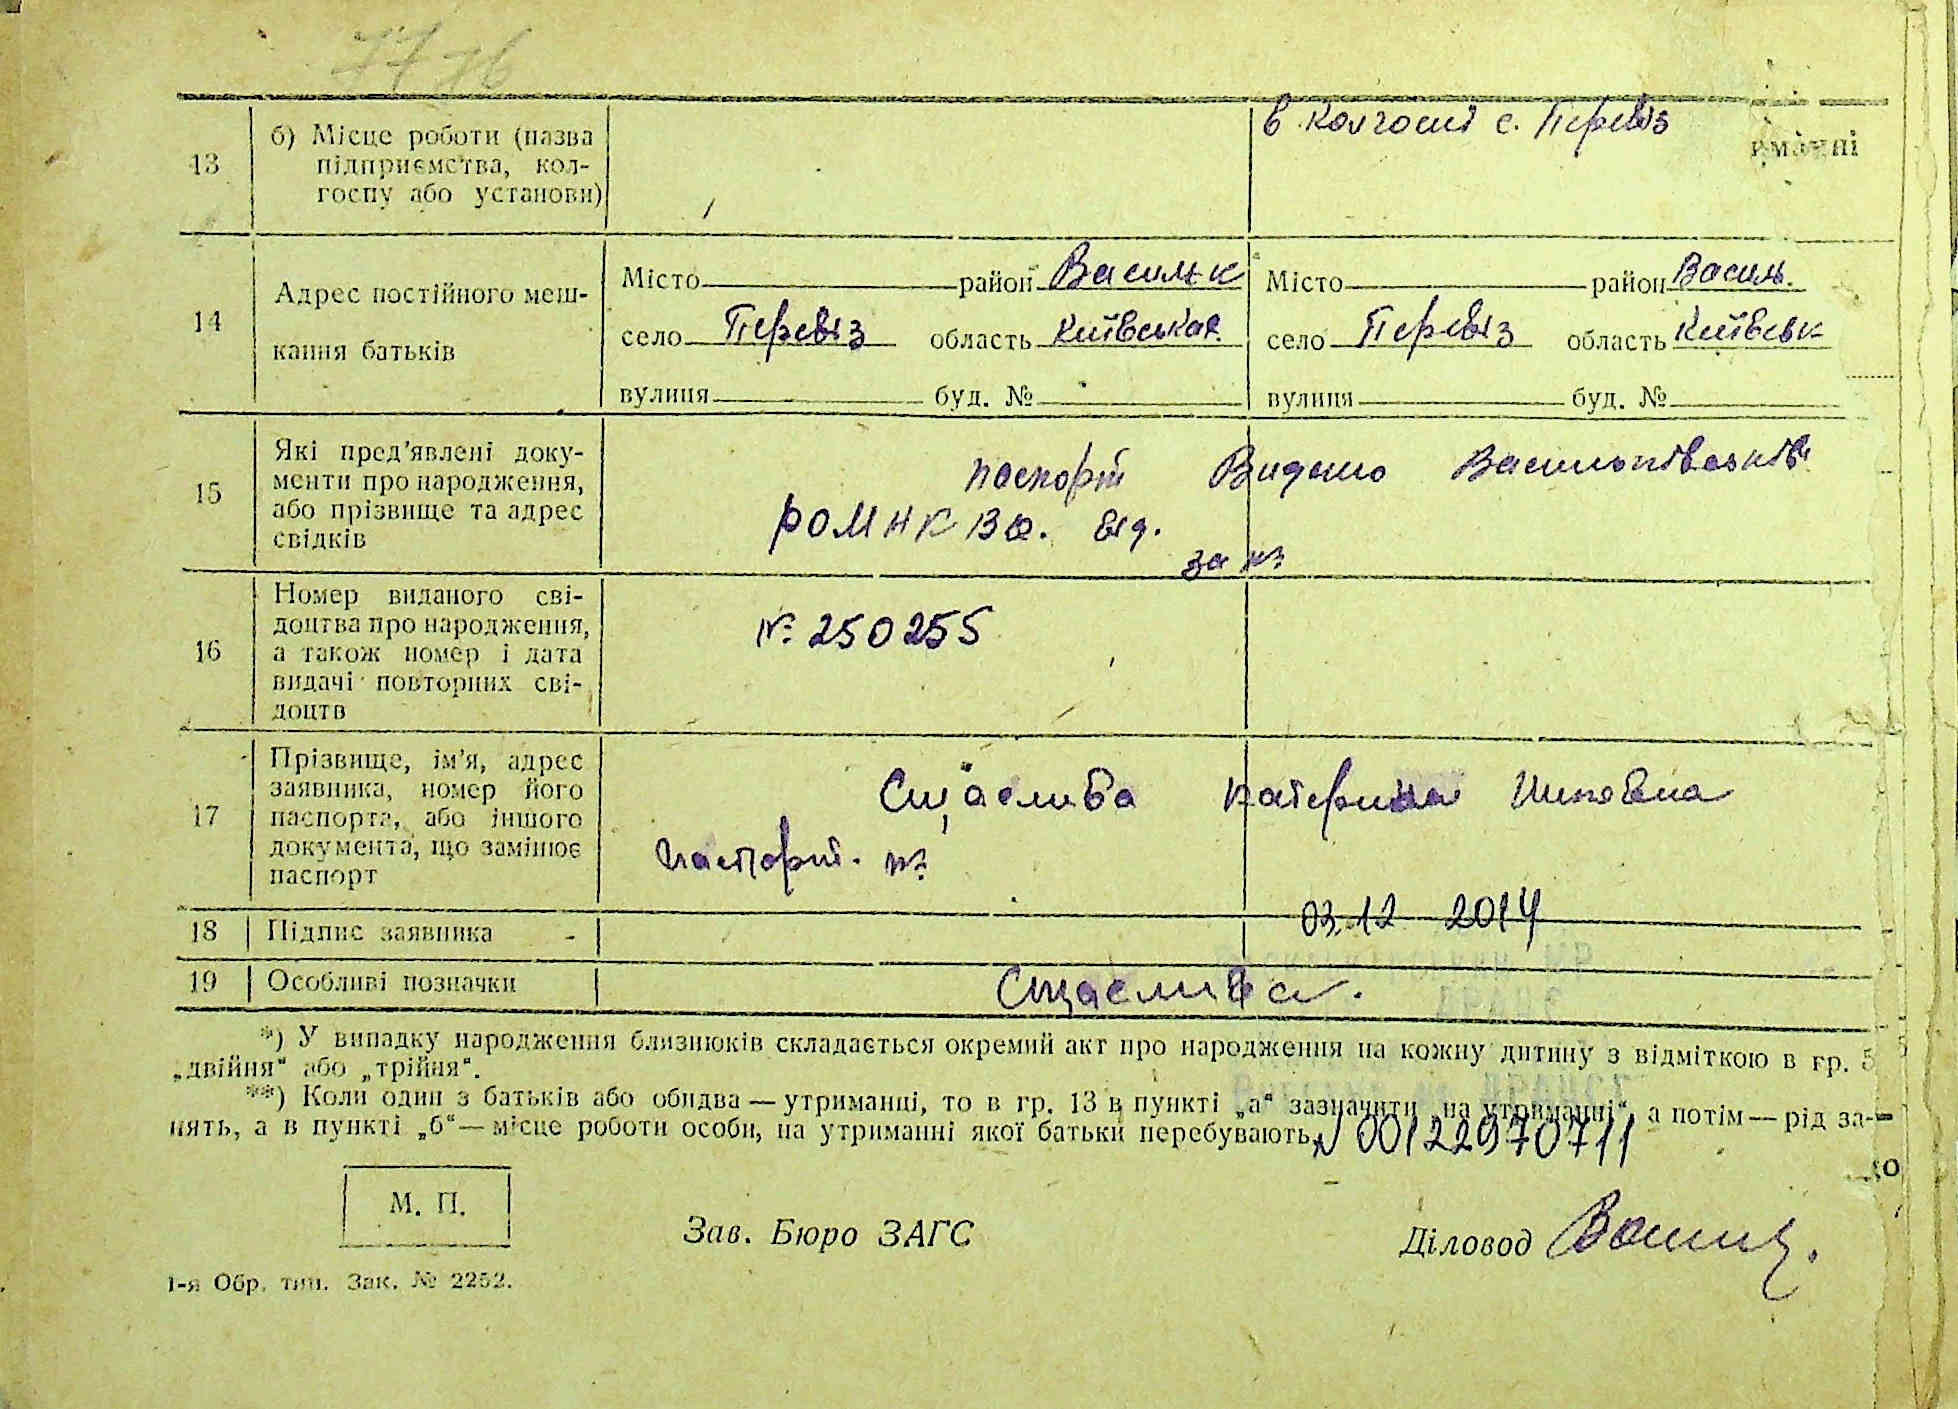 7776
13 б) Місце роботи (назва підприємства, колгоспу або установи) в колгоспі с. Перевіз
иманні
14 Адрес постійного мешкання батьків
Місто район Васильк Місто район Василь.
село Перевіз область Київська село Перевіз область Київськ
вулиця буд. № вулиця буд. №
15 Які пред'явлені документи про народження, або прізвище та адрес свідків
паспорт Видано Васильківським
РОМНКВС. від.
за №
16 Номер виданого свідоцтва про народження, а також номер і дата видачі повторних свідоцтв
№ 250255
17 Прізвище, ім'я, адрес заявника, номер його паспорта, або іншого документа, що замінює паспорт
Щаслива Катерина
паспорт. №
18 Підпис заявника 03.12 2014
19 Особливі позначки Щаслива.
*) У випадку народження близнюків складається окремий акт про народження на кожну дитину з відміткою в гр. 5
„двійня“ або „трійня“.
**) Коли один з батьків або обидва — утриманці, то в гр. 13 в пункті „а“ зазначити „на утриманні“, а потім — рід за-
нять, а в пункті „б“ — місце роботи особи, на утриманні якої батьки перебувають. № 00122970711
М. П.
Зав. Бюро ЗАГС Діловод
1-я Обр. тип. Зак. № 2252.